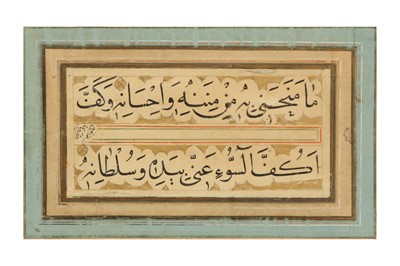 مَا مَنَحَنِي بِهِ مِنْ مِنَنِهِ وَاِحْسَانِهِ وَكَفَّ
اَكُفَّ السُّوءِ عَنِّي بِيَدِهِ وَسُلْطَانِهِ